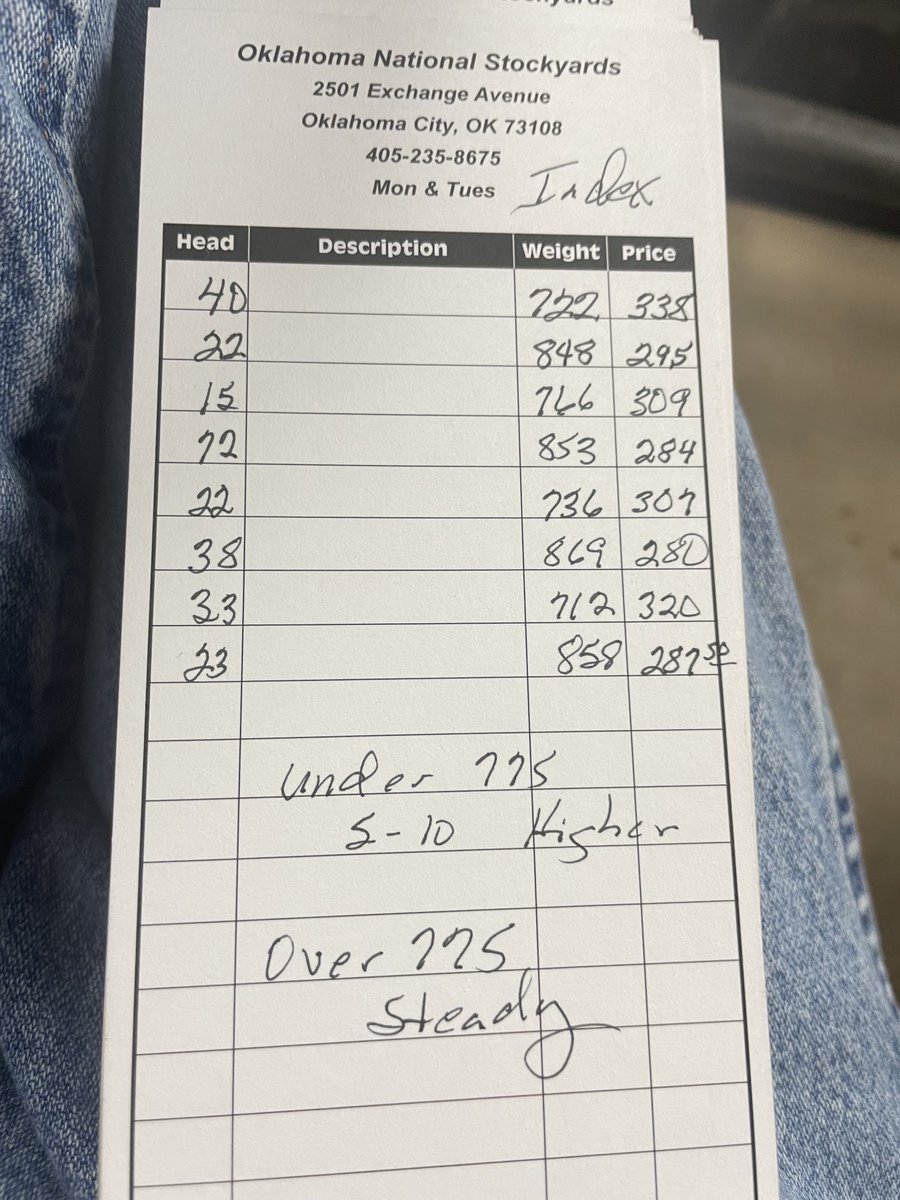 Oklahoma National Stockyards
2501 Exchange Avenue
Oklahoma City, OK 73108
405-235-8675
Mon & Tues Index
Head Description Weight Price
40 722 338
22 848 295
15 766 309
72 853 284
22 736 307
38 869 280
33 712 320
23 858 287 50
Under 775
5-10 Higher
Over 775
Steady